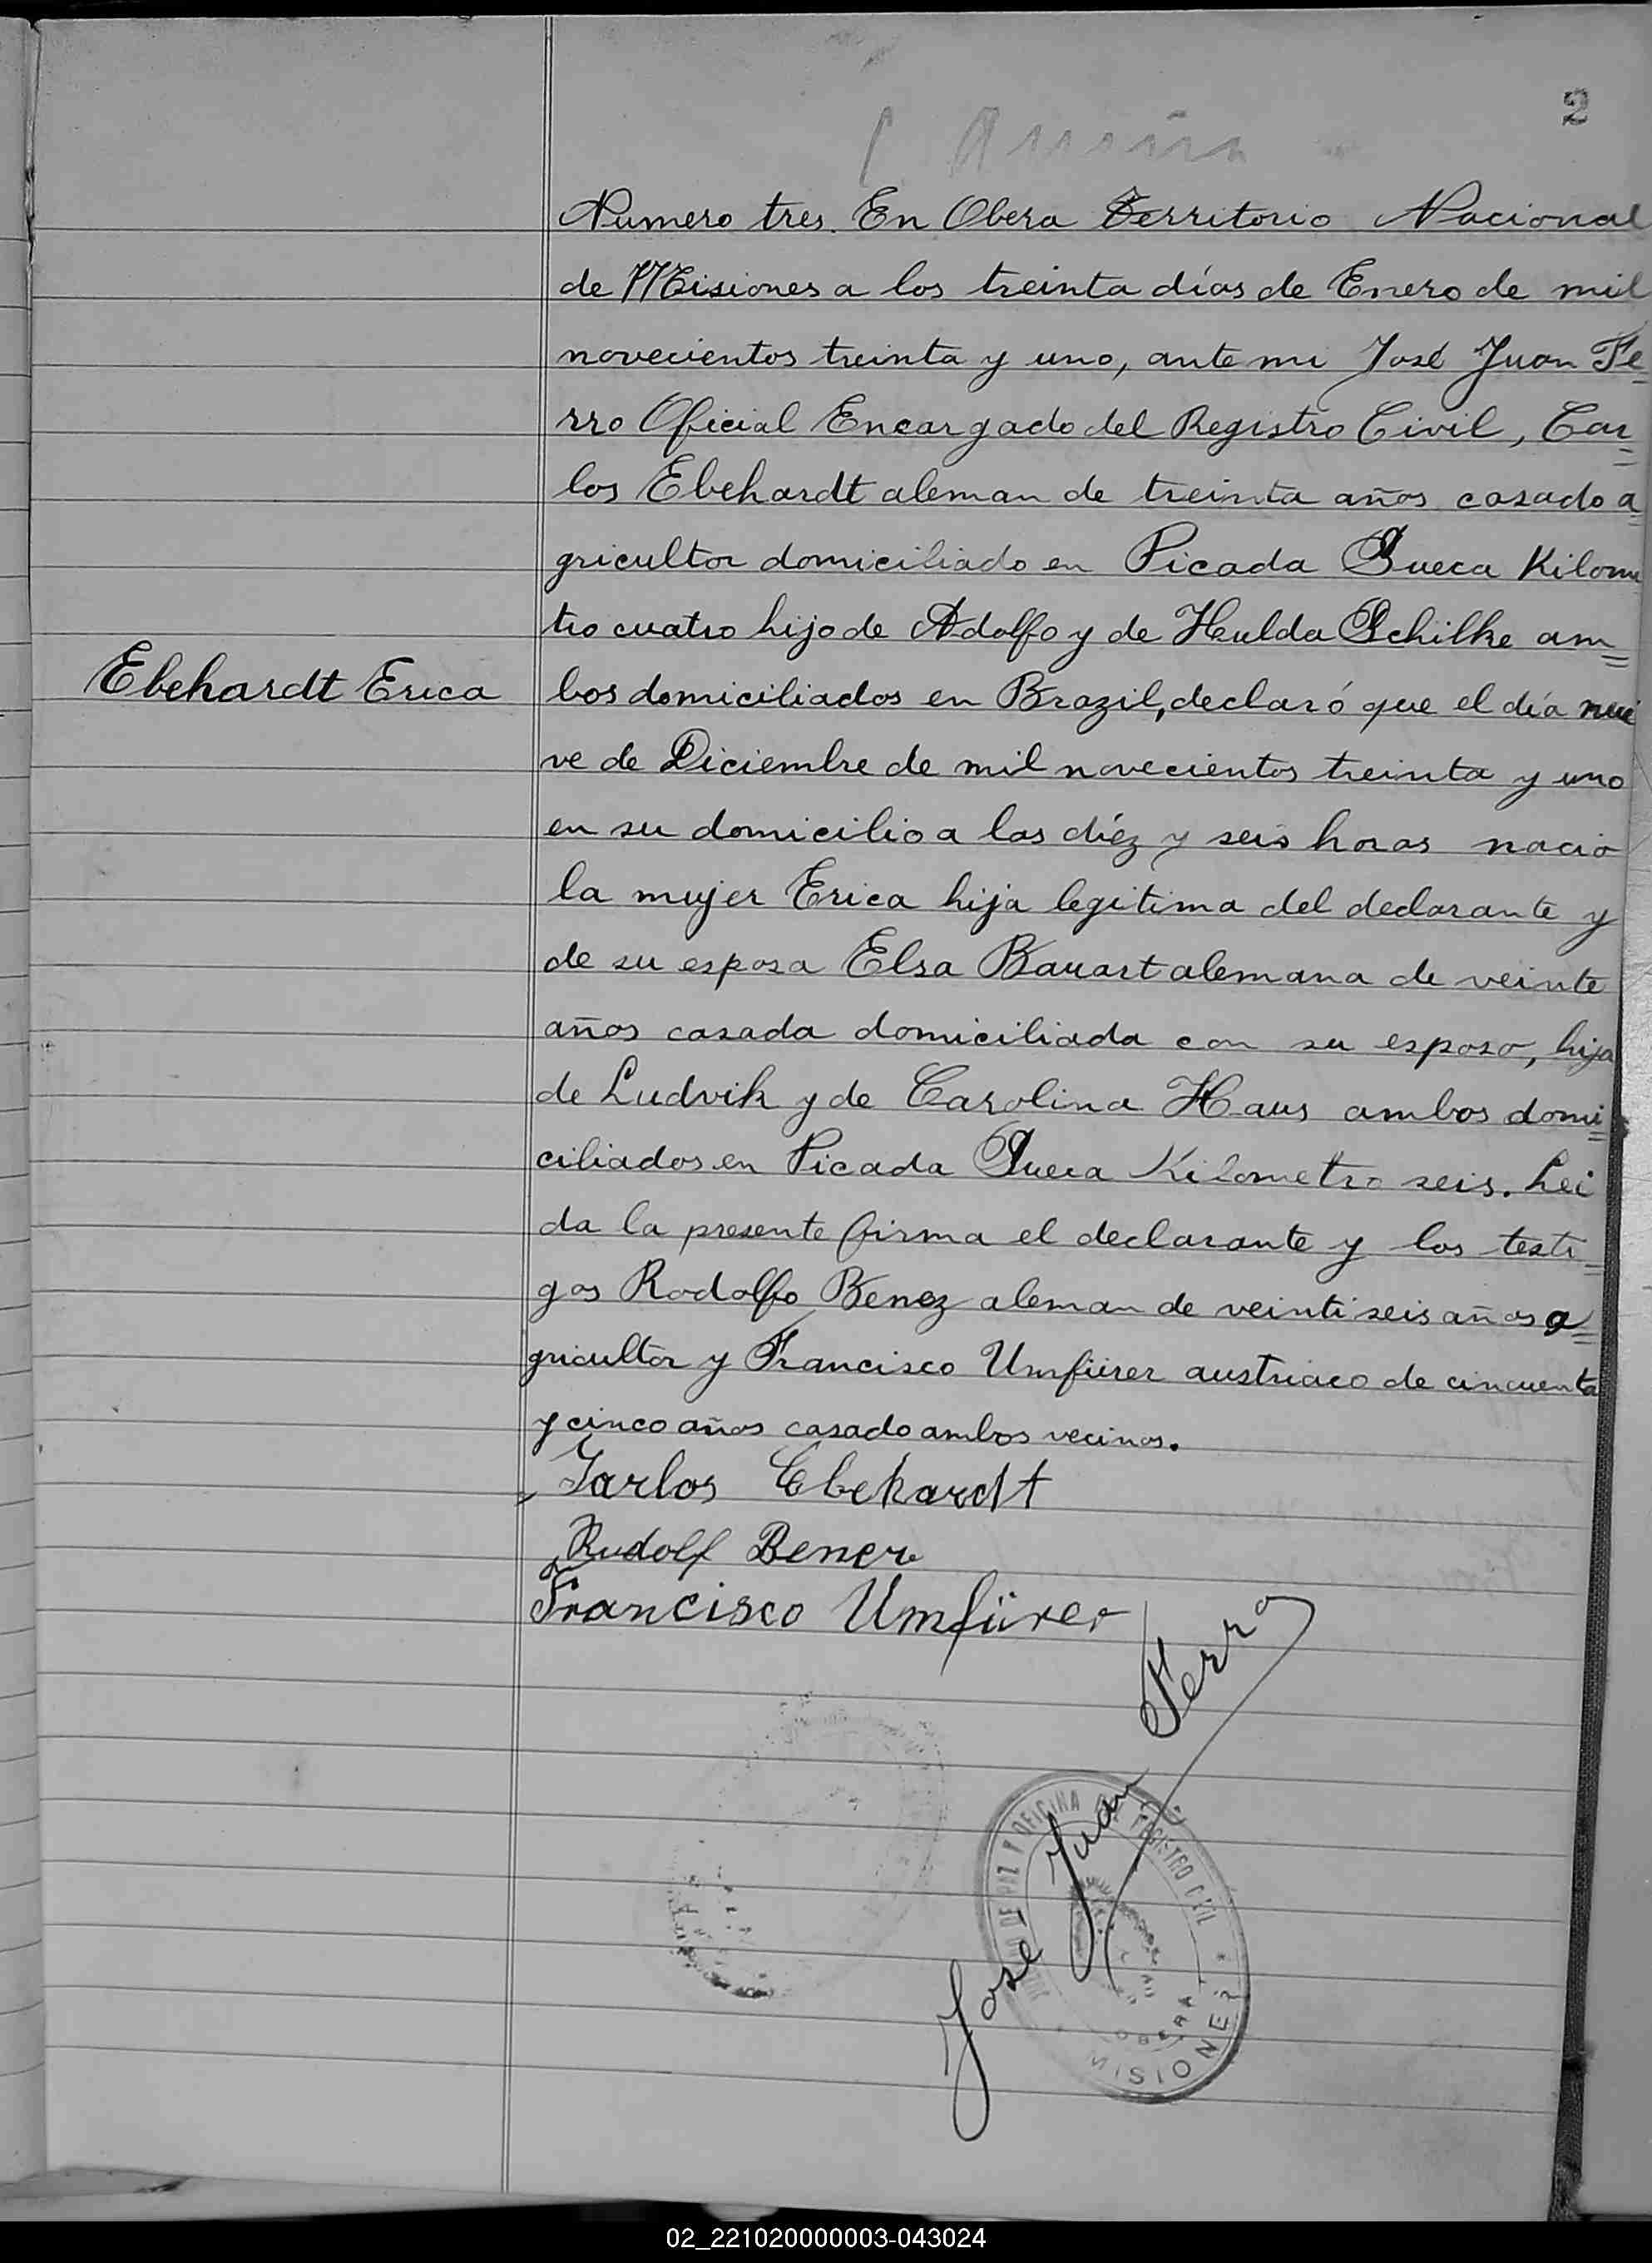 2
Numero tres. En Obera Territorio Nacional
de Misiones a los treinta días de Enero de mil
novecientos treinta y uno, ante mi José Juan Fe=
rro Oficial Encargado del Registro Civil, Car=
los Ebehardt aleman de treinta años casado a=
gricultor domiciliado en Picada Sueca Kilome
tro cuatro hijo de Adolfo y de Hulda Schilke am=
Ebehardt Erica
bos domiciliados en Brazil, declaró que el día nue
ve de Diciembre de mil novecientos treinta y uno
en su domicilio a las diéz y seis horas nacio
la mujer Erica hija legitima del declarante y
de su esposa Elsa Bauart alemana de veinte
años casada domiciliada con su esposo, hija
de Ludvik y de Carolina Haus ambos domi=
ciliados en Picada Sueca Kilometro seis. Lei
da la presente firma el declarante y los testi=
gos Rodolfo Benez aleman de veintiseis años a=
gricultor y Francisco Umfürer austriaco de cincuenta
y cinco años casado ambos vecinos.
Carlos Ebehardt
Rudolf Bener
Francisco Umfürer
José Juan Ferro
JUZGADO DE PAZ Y OFICINA DEL REGISTRO CIVIL
OBERA
MISIONES
02_221020000003-043024